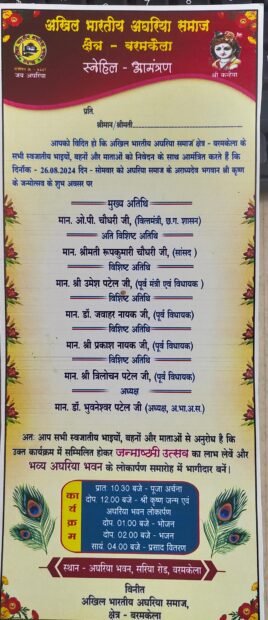 अखिल भारतीय अघरिया समाज
क्षेत्र - बरमकेला
स्नेहिल - आमंत्रण
जय अघरिया
श्री कन्हैया
प्रति,
श्रीमान/श्रीमती
आपको विदित हो कि अखिल भारतीय अघरिया समाज क्षेत्र - बरमकेला के
सभी स्वजातीय भाइयों, बहनों और माताओं को निवेदन के साथ आमंत्रित करते है कि
दिनाँक - 26.08.2024 दिन - सोमवार को अघरिया समाज के अराध्यदेव भगवान श्री कृष्ण
के जन्मोत्सव के शुभ अवसर पर
मुख्य अतिथि
मान. ओ.पी. चौधरी जी, (वित्तमंत्री, छ.ग. शासन)
अति विशिष्ट अतिथि
मान. श्रीमती रूपकुमारी चौधरी जी, (सांसद)
विशिष्ट अतिथि
मान. श्री उमेश पटेल जी, (पूर्व मंत्री एवं विधायक)
विशिष्ट अतिथि
मान. डॉ. जवाहर नायक जी, (पूर्व विधायक)
विशिष्ट अतिथि
मान. श्री प्रकाश नायक जी, (पूर्व विधायक)
विशिष्ट अतिथि
मान. श्री त्रिलोचन पटेल जी, (पूर्व विधायक)
अध्यक्ष
मान. डॉ. भुवनेश्वर पटेल जी (अध्यक्ष, अ.भा.अ.स.)
अतः आप सभी स्वजातीय भाइयों, बहनों और माताओं से अनुरोध है कि
उक्त कार्यक्रम में सम्मिलित होकर जन्माष्टमी उत्सव का लाभ लेवें और
भव्य अघरिया भवन के लोकार्पण समारोह में भागीदार बनें।
कार्यक्रम
प्रातः 10.30 बजे - पूजा अर्चना
दोप. 12.00 बजे - श्री कृष्ण जन्म एवं
अघरिया भवन लोकार्पण
दोप. 01.00 बजे - भोजन
दोप. 02.00 बजे - भजन
सायं. 04.00 बजे - प्रसाद वितरण
स्थान - अघरिया भवन, सरिया रोड, बरमकेला
विनीत
अखिल भारतीय अघरिया समाज,
क्षेत्र - बरमकेला